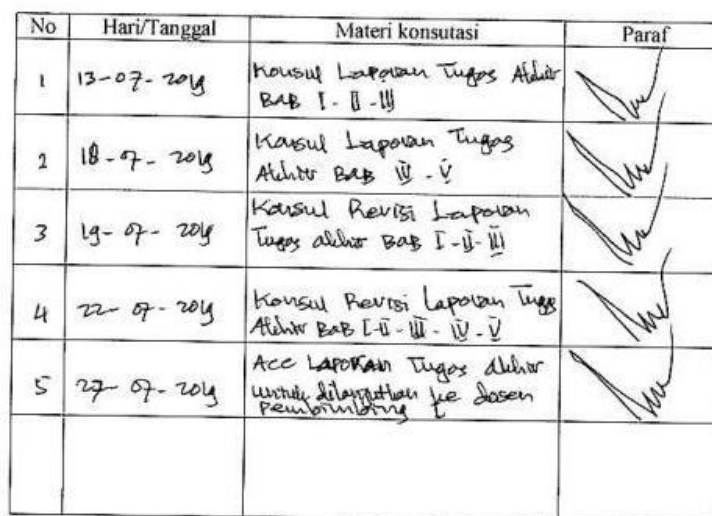 No Hari/Tanggal Materi konsutasi Paraf
1 13-07-2019 Konsul Laporan Tugas Akhir
BAB I - II - III
2 18-07-2019 Konsul Laporan Tugas
Akhir BAB IV - V
3 19-07-2019 Konsul Revisi Laporan
Tugas akhir BAB I - II - III
4 22-07-2019 Konsul Revisi Laporan Tugas
Akhir BAB I - II - III - IV - V
5 27-07-2019 Acc LAPORAN Tugas akhir
untuk dilanjutkan ke dosen
Pembimbing I